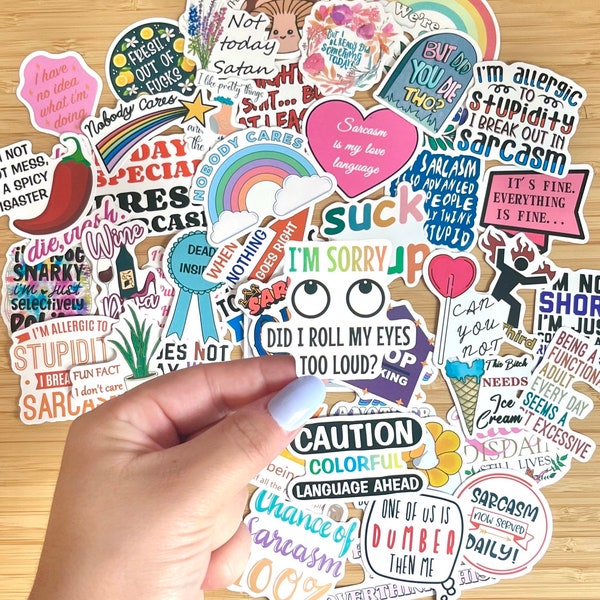 I have
no idea
what i'm
doing
FRESH
OUT OF
FUCKS
Not
today
Satan
I like pretty things
BUT I
ALREADY DID
SOMETHING
TODAY
We're
BUT DID
YOU DIE
TWO?
I'm allergic
to
stupidity
I break out in
sarcasm
Nobody Cares
NOBODY CARES
Sarcasm
is my love
language
SARCASM
SO ADVANCED
PEOPLE
THINK
STUPID
IT'S FINE.
EVERYTHING
IS FINE...
NOT
MESS,
A SPICY
DISASTER
DAY
SPECIAL
FRESH
suck
UP
die, crash,
SNARKY
i'm just
selectively
Wine
DEAD
INSIDE
WHEN
NOTHING
GOES RIGHT
I'M SORRY
DID I ROLL MY EYES
TOO LOUD?
CAN
YOU
NOT
Third
I'M NO
SHOR
I'M JUS
I'M ALLERGIC TO
STUPIDIT
SARCAS
FUN FACT
I don't care
OES NOT
This Bitch
NEEDS
Ice
Cream
BEING A
FUNCTION
ADULT
EVERY DAY
SEEMS A
EXCESSIVE
CAUTION
COLORFUL
LANGUAGE AHEAD
DISDAI
STILL LIVES
being
Chance of
Sarcasm
100%
ONE OF US IS
DUMBER
THEN ME
SARCASM
NOW SERVED
DAILY!
OVERTHINK
THIS